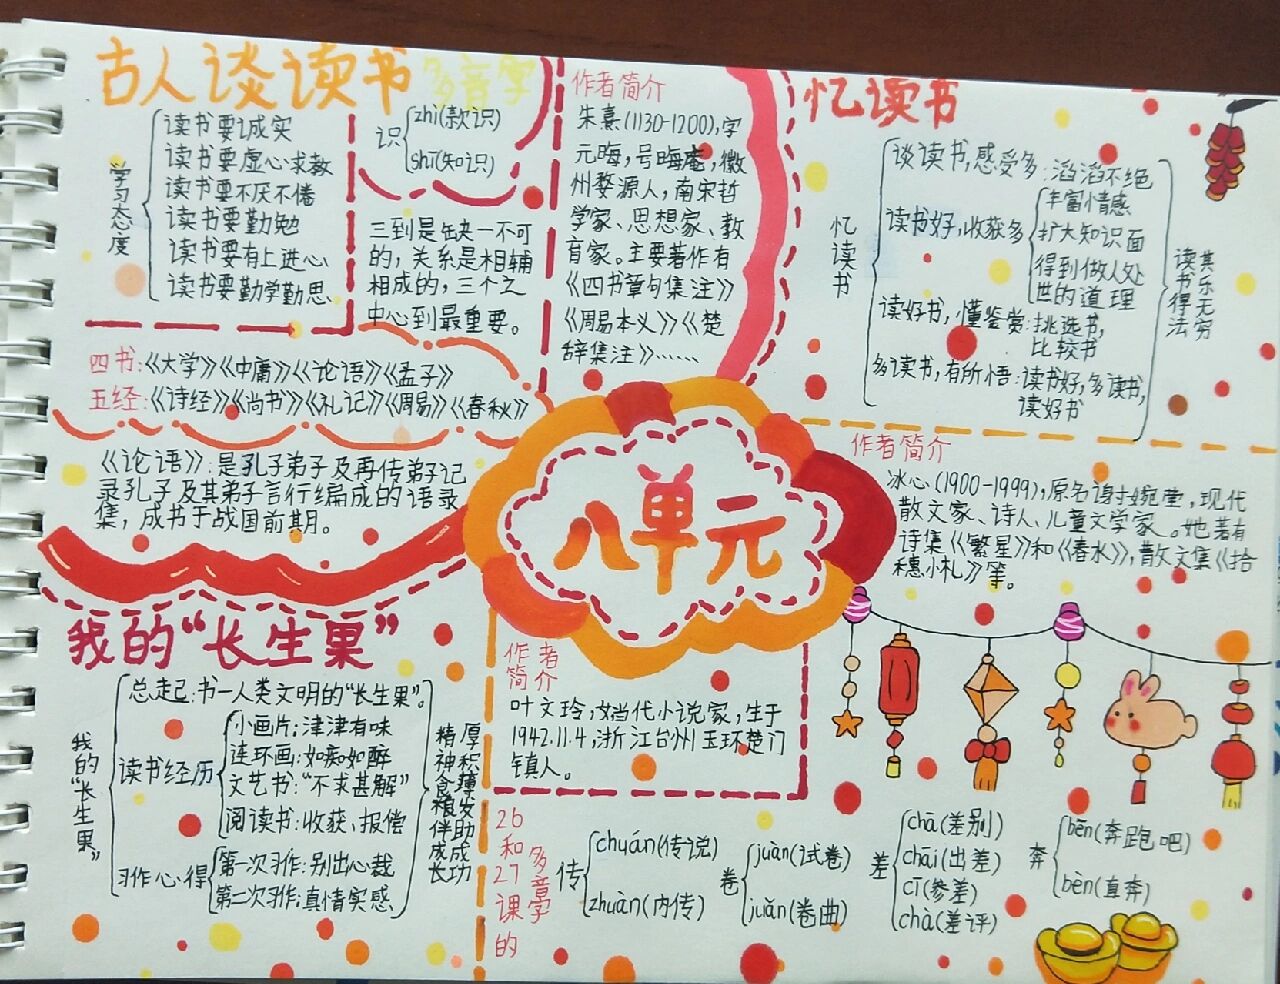 古人谈读书
多音字
学习态度
读书要诚实
读书要虚心求教
读书要不厌不倦
读书要勤勉
读书要有上进心
读书要勤学勤思
识
zhì(款识)
shī(知识)
三到是缺一不可
的,关系是相辅
相成的,三个之
中心到最重要。
四书:《大学》《中庸》《论语》《孟子》
五经:《诗经》《尚书》《礼记》《周易》《春秋》
《论语》:是孔子弟子及再传弟子记
录孔子及其弟子言行编成的语录
集,成书于战国前期。
作者简介
朱熹(1130-1200),字
元晦,号晦庵,徽
州婺源人,南宋哲
学家、思想家、教
育家。主要著作有
《四书章句集注》
《周易本义》《楚
辞集注》……
忆读书
忆读书
谈读书,感受多:滔滔不绝
读书好,收获多
丰富情感
扩大知识面
得到做人处
世的道理
读好书,懂鉴赏:挑选书,
比较书
多读书,有所悟:读书好,多读书,
读好书
读书得法
其乐无穷
作者简介
冰心(1900-1999),原名谢婉莹,现代
散文家、诗人、儿童文学家。她著有
诗集《繁星》和《春水》,散文集《拾
穗小札》等。
八单元
我的“长生果”
我的“长生果”
总起:书一人类文明的“长生果”。
读书经历
小画片:津津有味
连环画:如痴如醉
文艺书:“不求甚解”
阅读书:收获、报偿
习作心得
第一次习作:别出心裁
第二次习作:真情实感
精神食粮伴成长
厚积薄发助成功
作者
简介
叶文玲,女当代小说家,生于
1942.11.4,浙江台州玉环楚门
镇人。
26和27课的
多音字
传
chuán(传说)
zhuàn(内传)
卷
juàn(试卷)
juǎn(卷曲)
差
chā(差别)
chāi(出差)
cī(参差)
chà(差评)
奔
bēn(奔跑吧)
bèn(直奔)